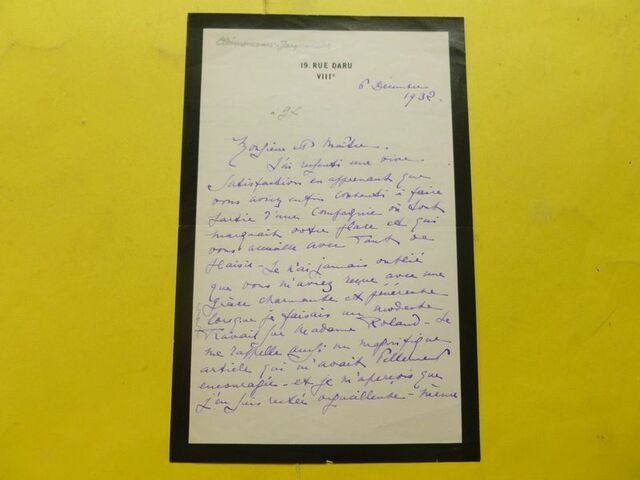 Clémenceau-Jacquemaire
19. RUE DARU
VIIIᵉ
6 Décembre
1932.
Monsieur et Maître.
J'ai ressenti une vive
satisfaction en apprenant que
vous aviez enfin consenti à faire
partie d'une Compagnie où tout
marquait votre place et qui
vous accueille avec tant de
plaisir - Je n'ai jamais oublié
que vous m'avez reçue avec une
grâce charmante et généreuse
lorsque je faisais un modeste
travail sur Madame Roland - Je
me rappelle aussi un magnifique
article qui m'avait tellement
encouragée - et je m'aperçois que
j'en suis restée orgueilleuse - même